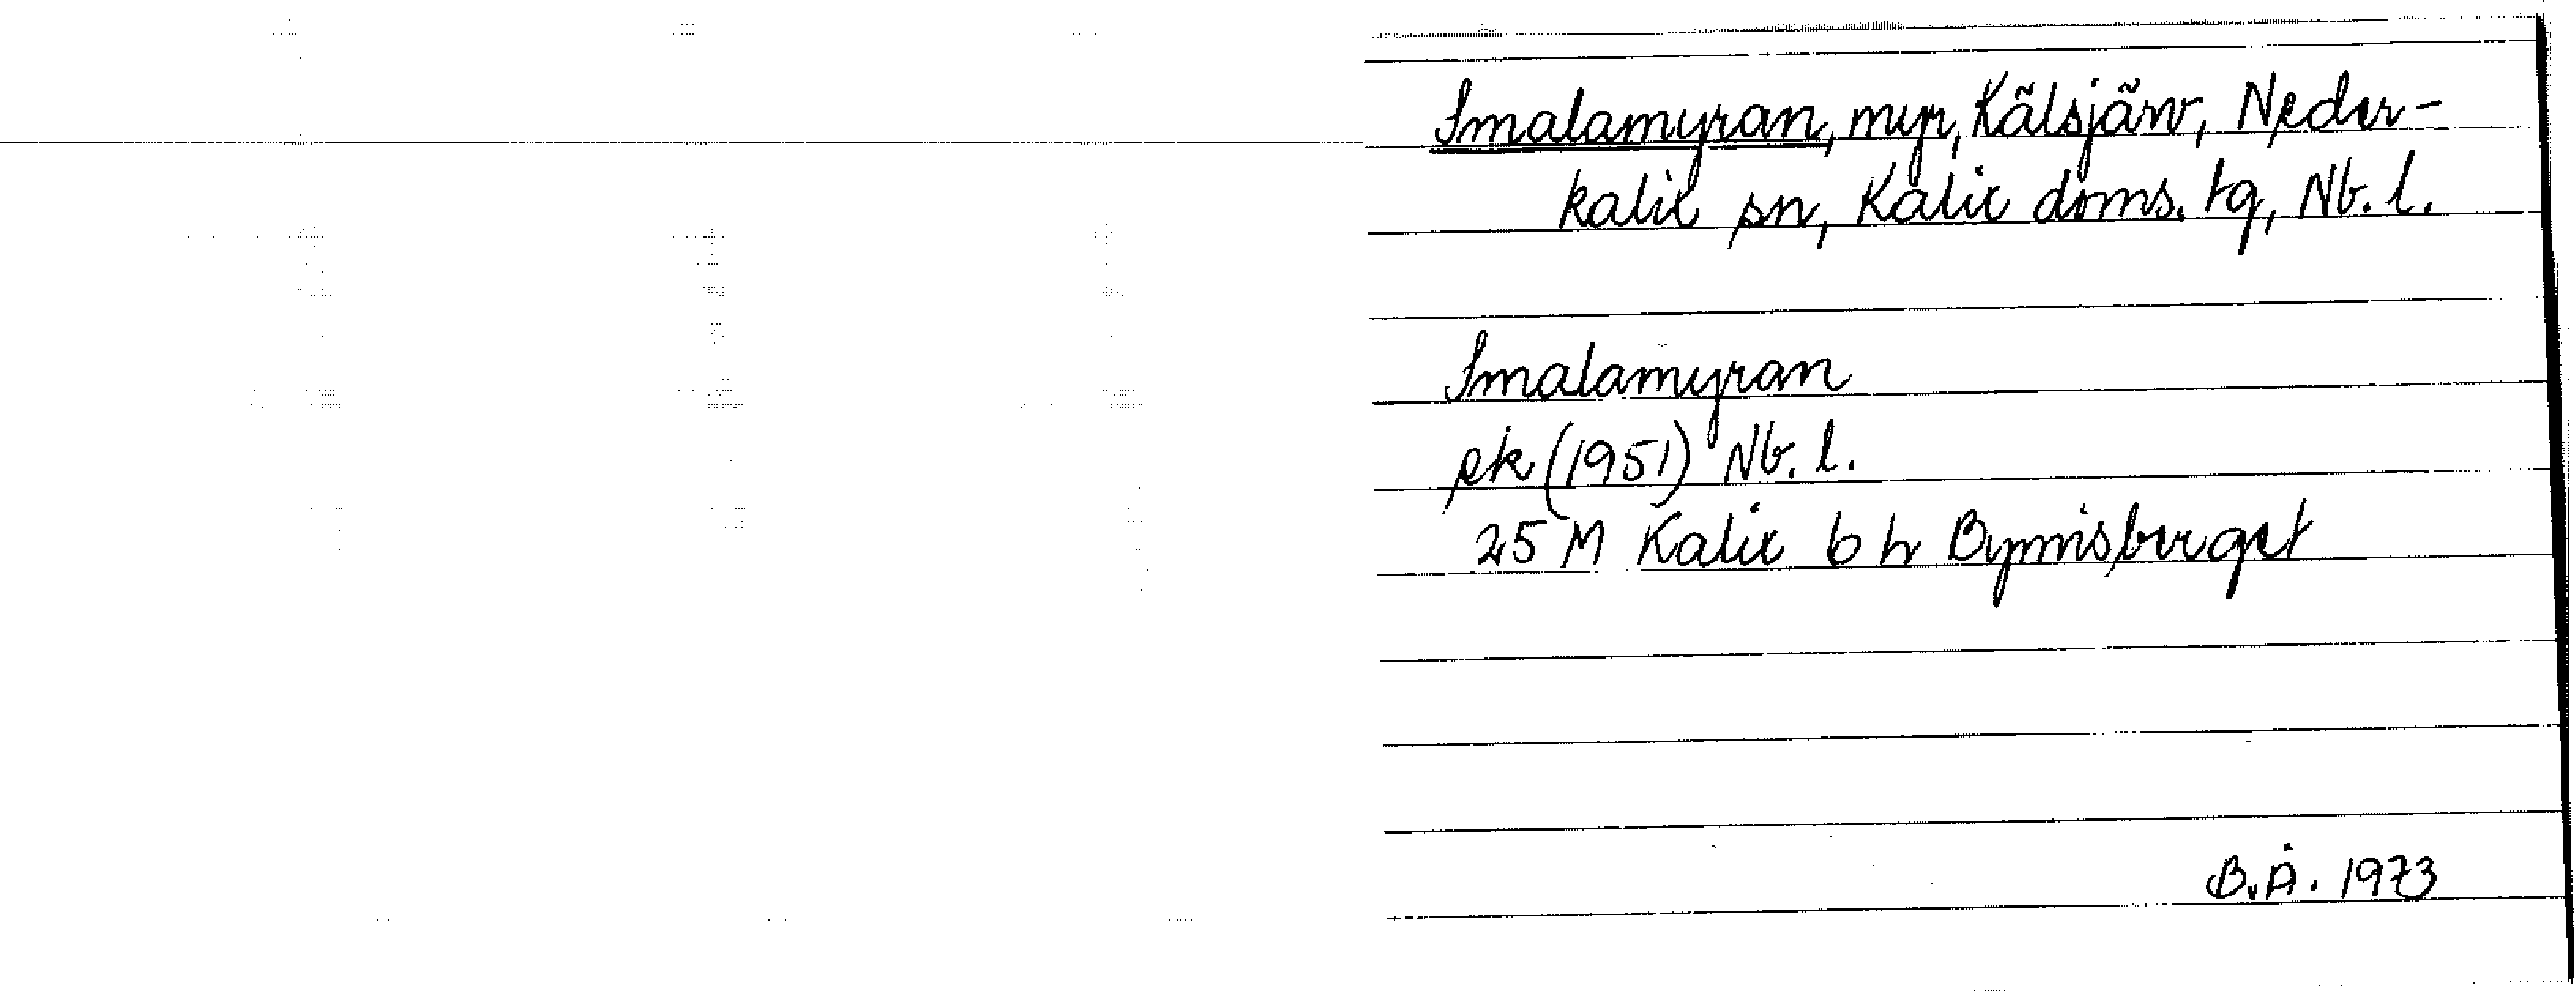 Smalamyran, myr, Kälsjärv, Neder-
kalix sn, Kalix doms. tg, Nb. l.
Smalamyran
ek (1951) Nb. l.
25 M Kalix 6 h Bynnisberget
B.Å. 1973